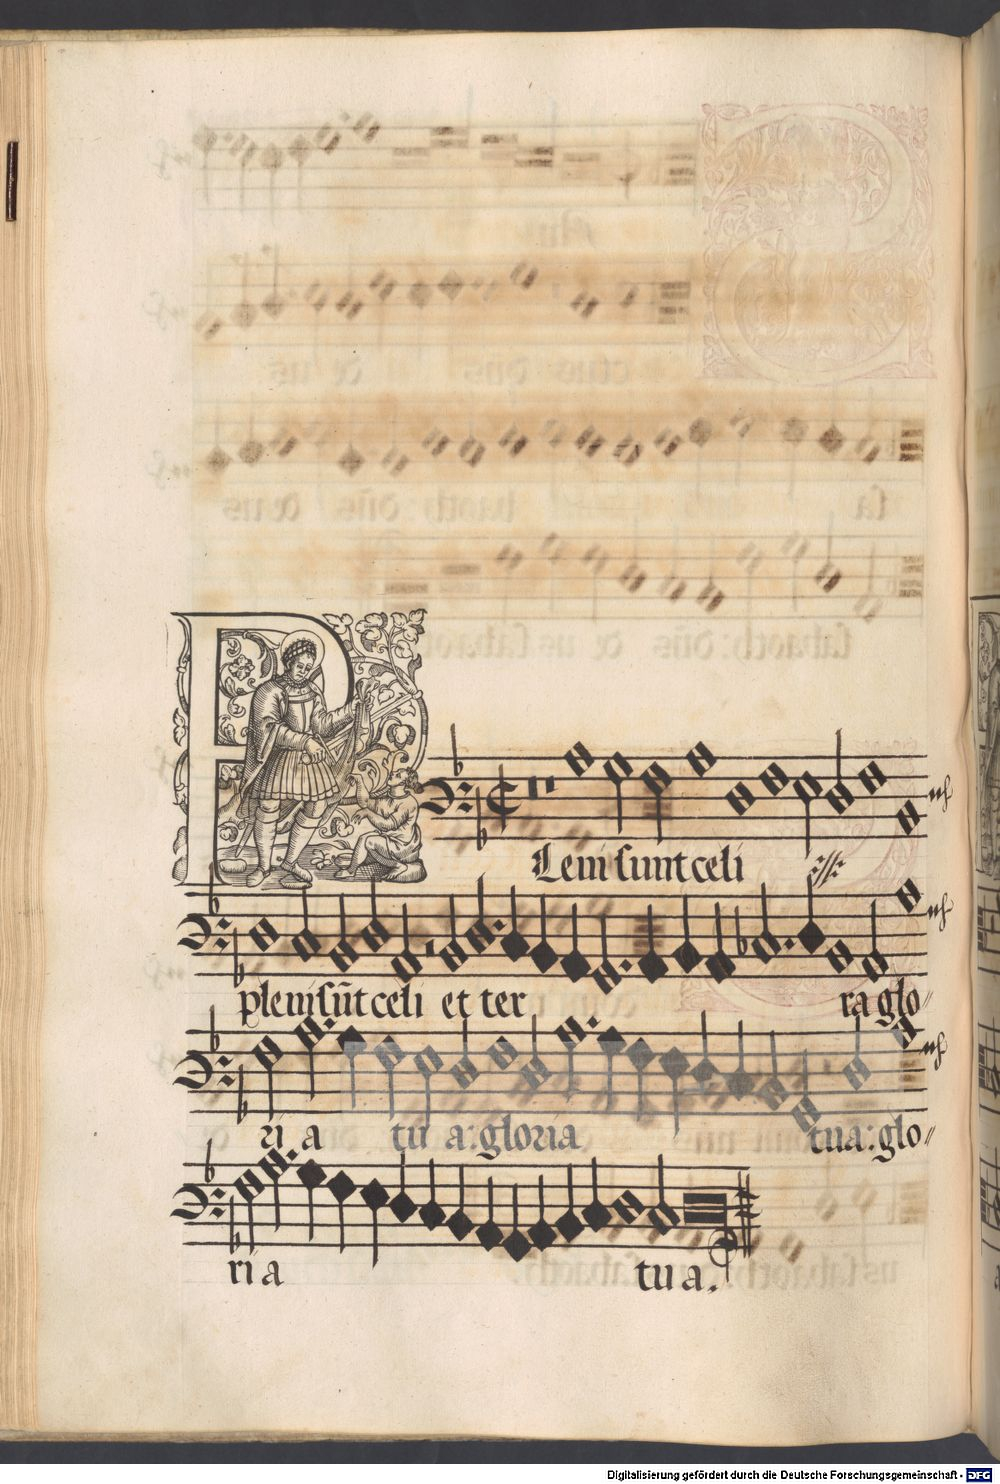 PLeni sunt celi
pleni sūt celi et ter ra glo⸗
ri a tu a: gloria tua: glo⸗
ri a tu a.
Digitalisierung gefördert durch die Deutsche Forschungsgemeinschaft - DFG